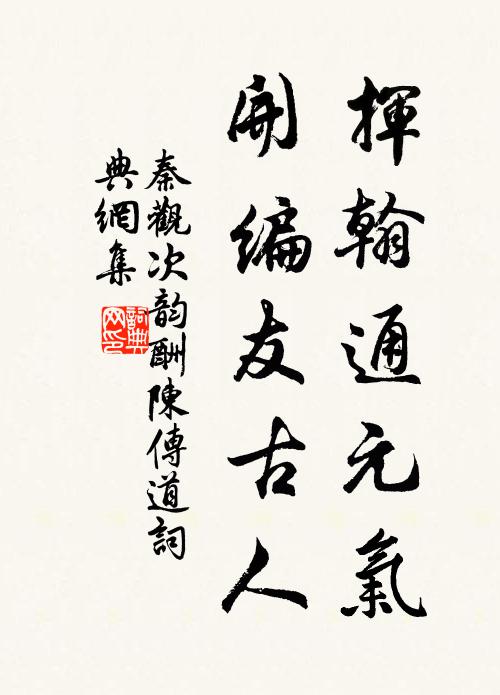 揮翰通元氣
開編友古人
秦觀次韵酬陳傳道詞
典網集
詞典网印